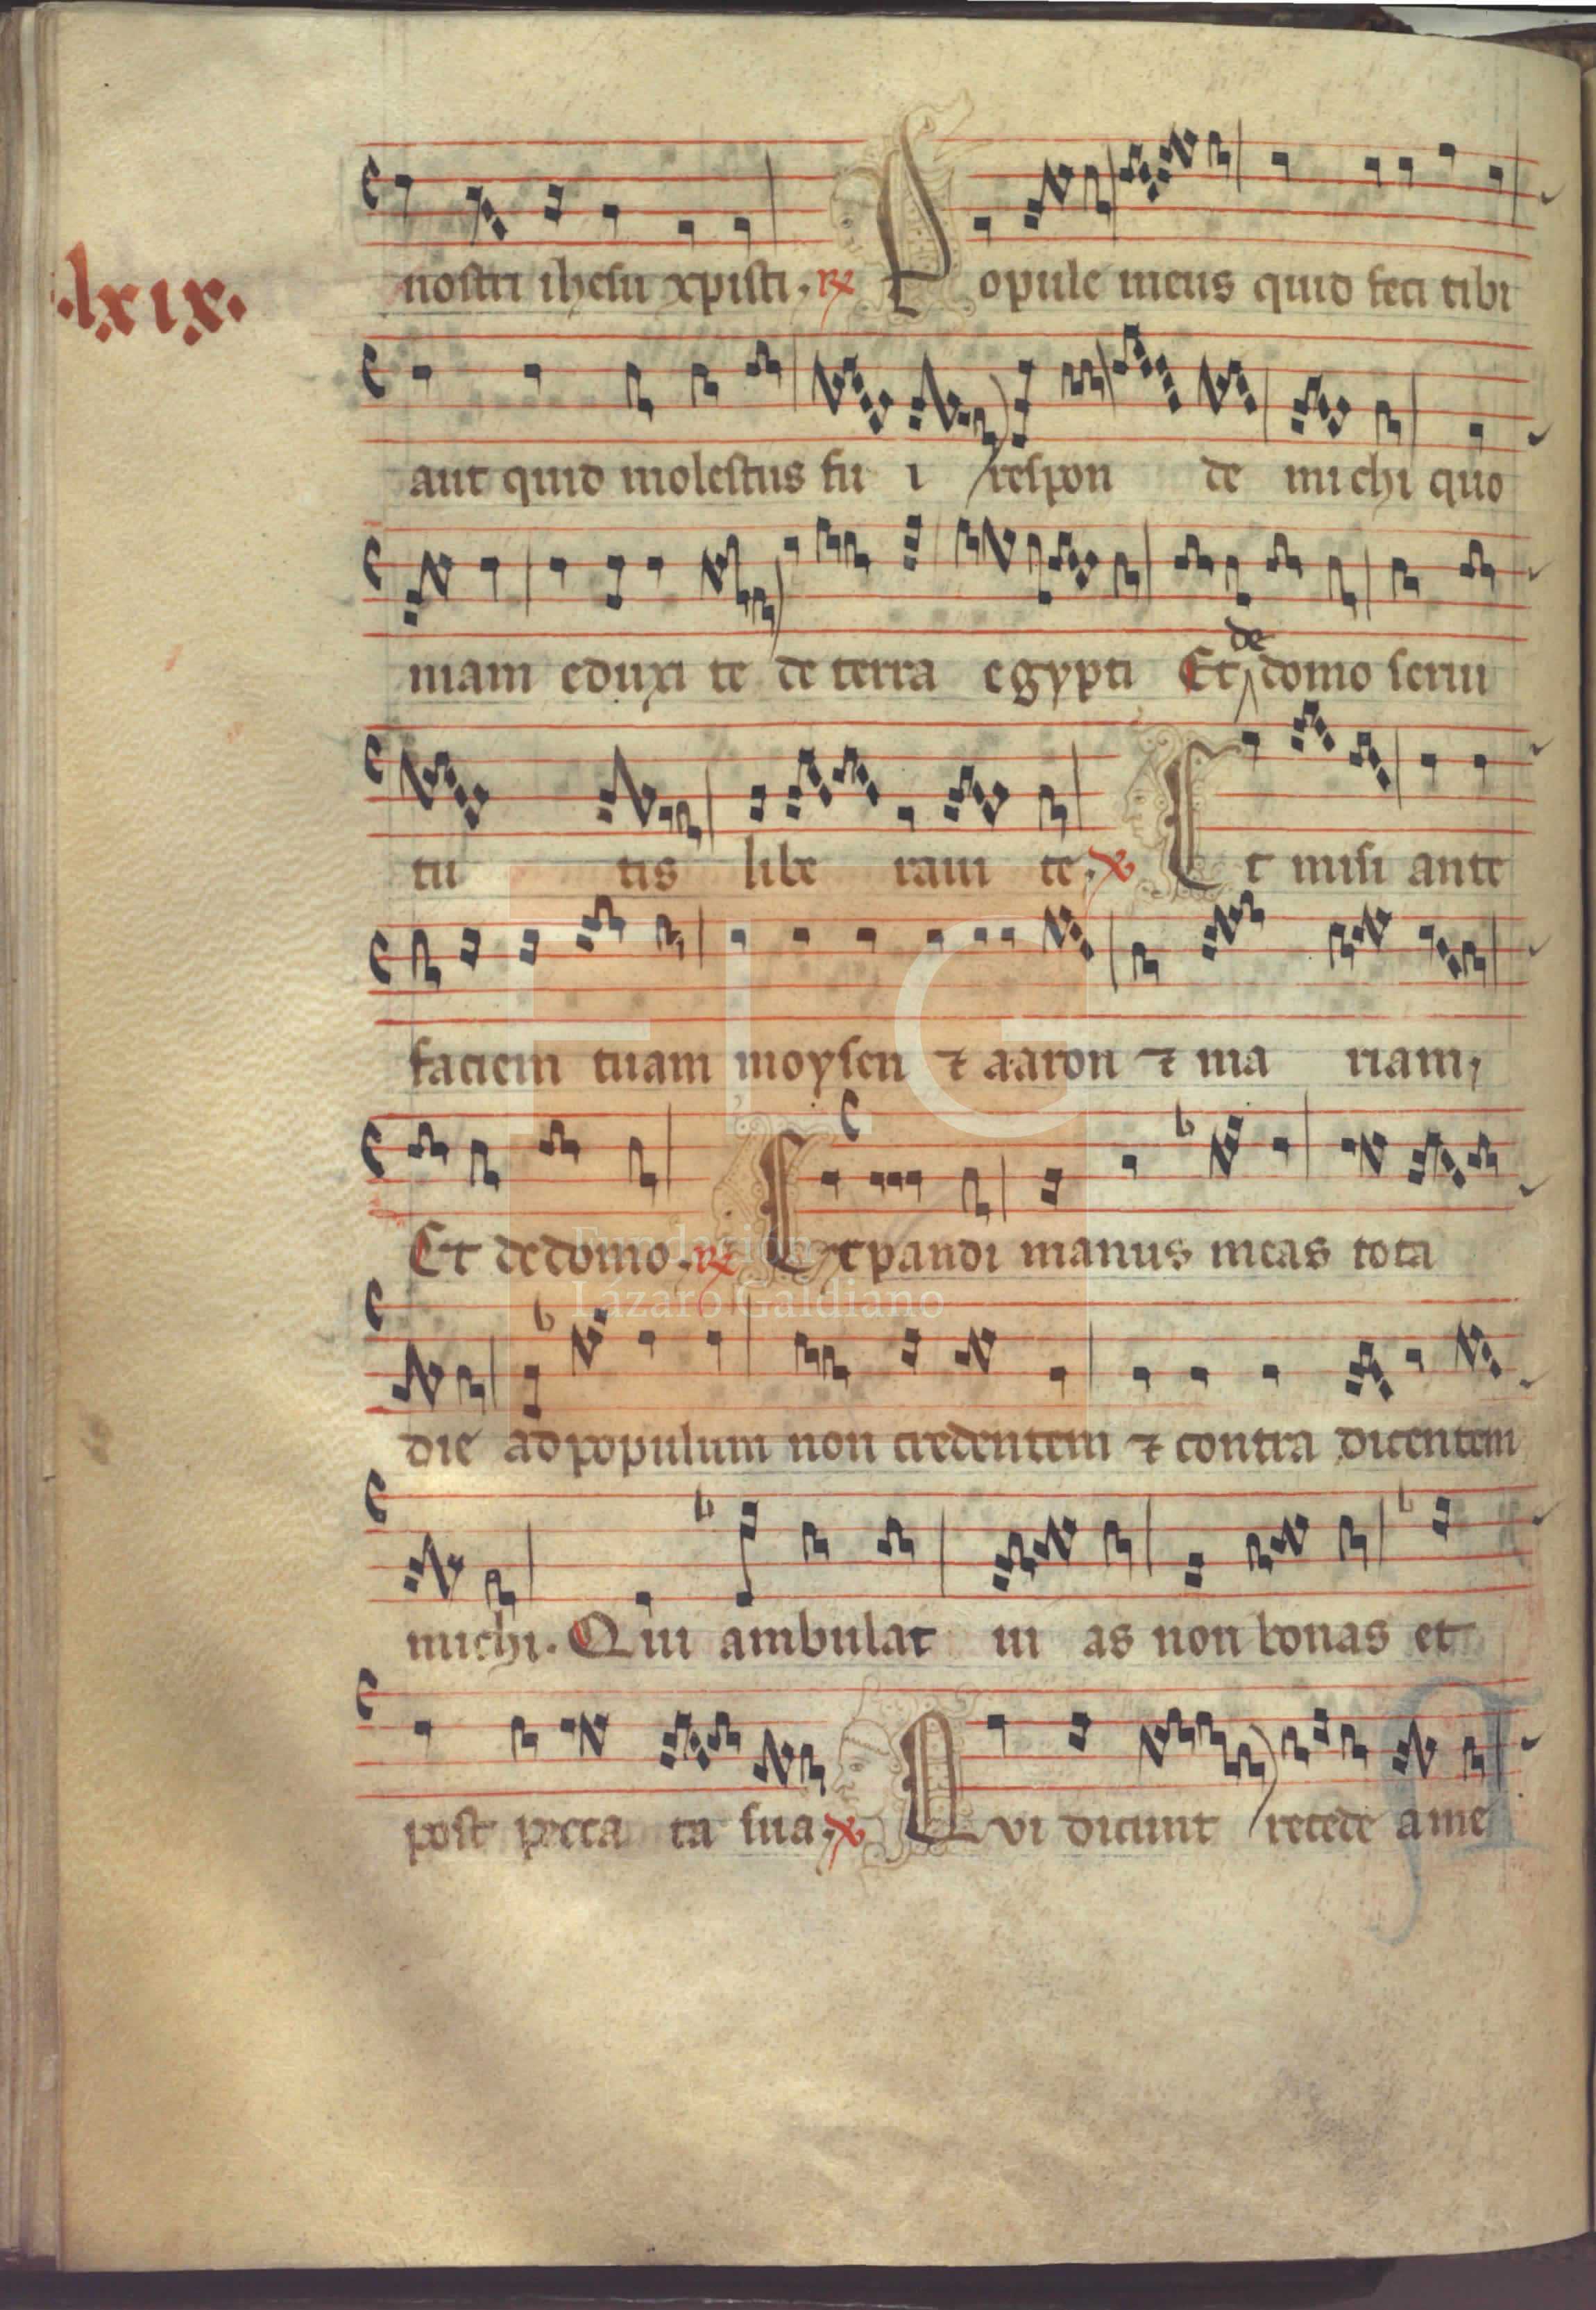 .lxix.
nostri ihesu xpisti. ℟ Popule meus quid feci tibi
aut quid molestus fu i respon de michi quo
niam eduxi te de terra egypti Et de domo serui
tu tis libe raui te. ℣ Et misi ante
faciem tuam moysen ⁊ aaron ⁊ ma riam,
Et de domo. ℟ Expandi manus meas tota
die ad populum non credentem ⁊ contra dicentem
michi. Qui ambulat ui as non bonas et
post pecca ta sua. ℣ Qvi dicunt recede a me
FLG
Fundación
Lázaro Galdiano